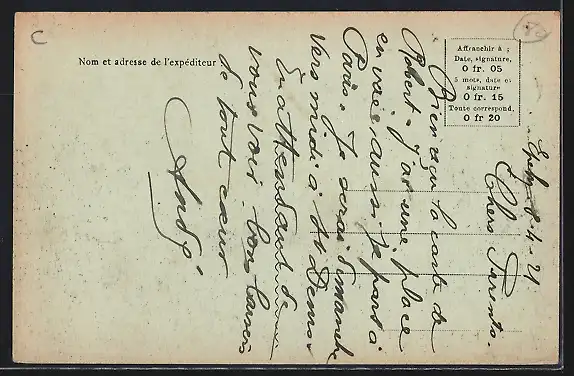 C
Nom et adresse de l'expéditeur
Affranchir à :
Date, signature,
0 fr. 05
5 mots, date et
signature
0 fr. 15
Toute correspond.
0 fr 20
8-4-21
Chers Parents.
Bien reçu la carte de
Robert. J'ai une place
en vue aussi je pars à
Paris. Je serai dimanche
vers midi à St Denis
En attendant de
vous voir bons baisers
de tout cœur
André